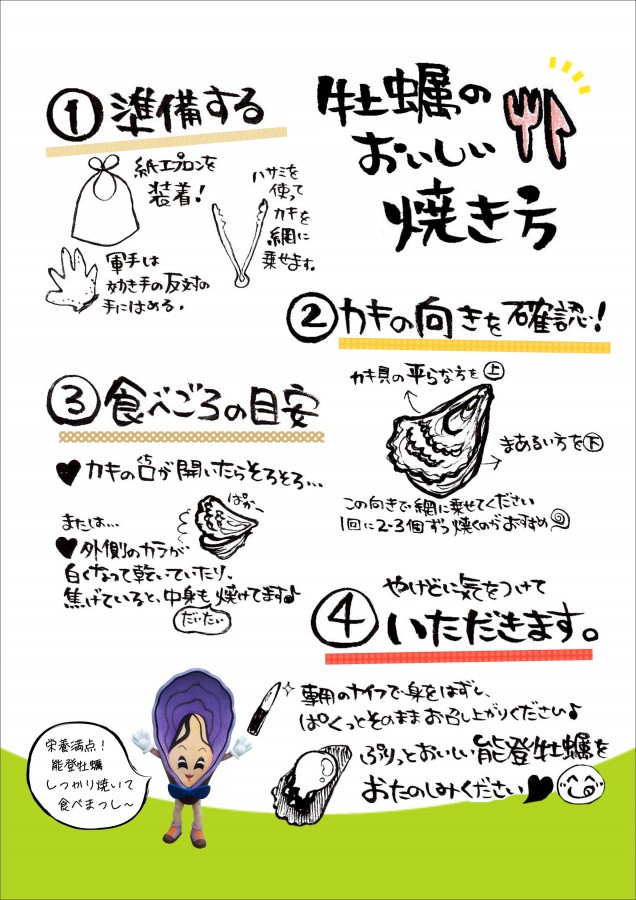 牡蠣の
おいしい
焼き方
①準備する
紙エプロンを
装着!
ハサミを
使って
カキを
網に
乗せます。
軍手は
効き手の反対の
手にはめる。
②カキの向きを確認!
カキ貝の平らな方を上
まあるい方を下
この向きで網に乗せてください
1回に2~3個ずつ焼くのがおすすめ
③食べごろの目安
♥カキの口が開いたらそろそろ…
くち
ぱかー
または…
♥外側のカラが
白くなって乾いていたり、
焦げていると、中身も焼けてます♪
だいたい
やけどに気をつけて
④いただきます。
専用のナイフで身をはずし、
ぱくっとそのままお召し上がりください♪
ぷりっとおいしい能登牡蠣を
おたのしみください♥
栄養満点!
能登牡蠣
しっかり焼いて
食べまっし~